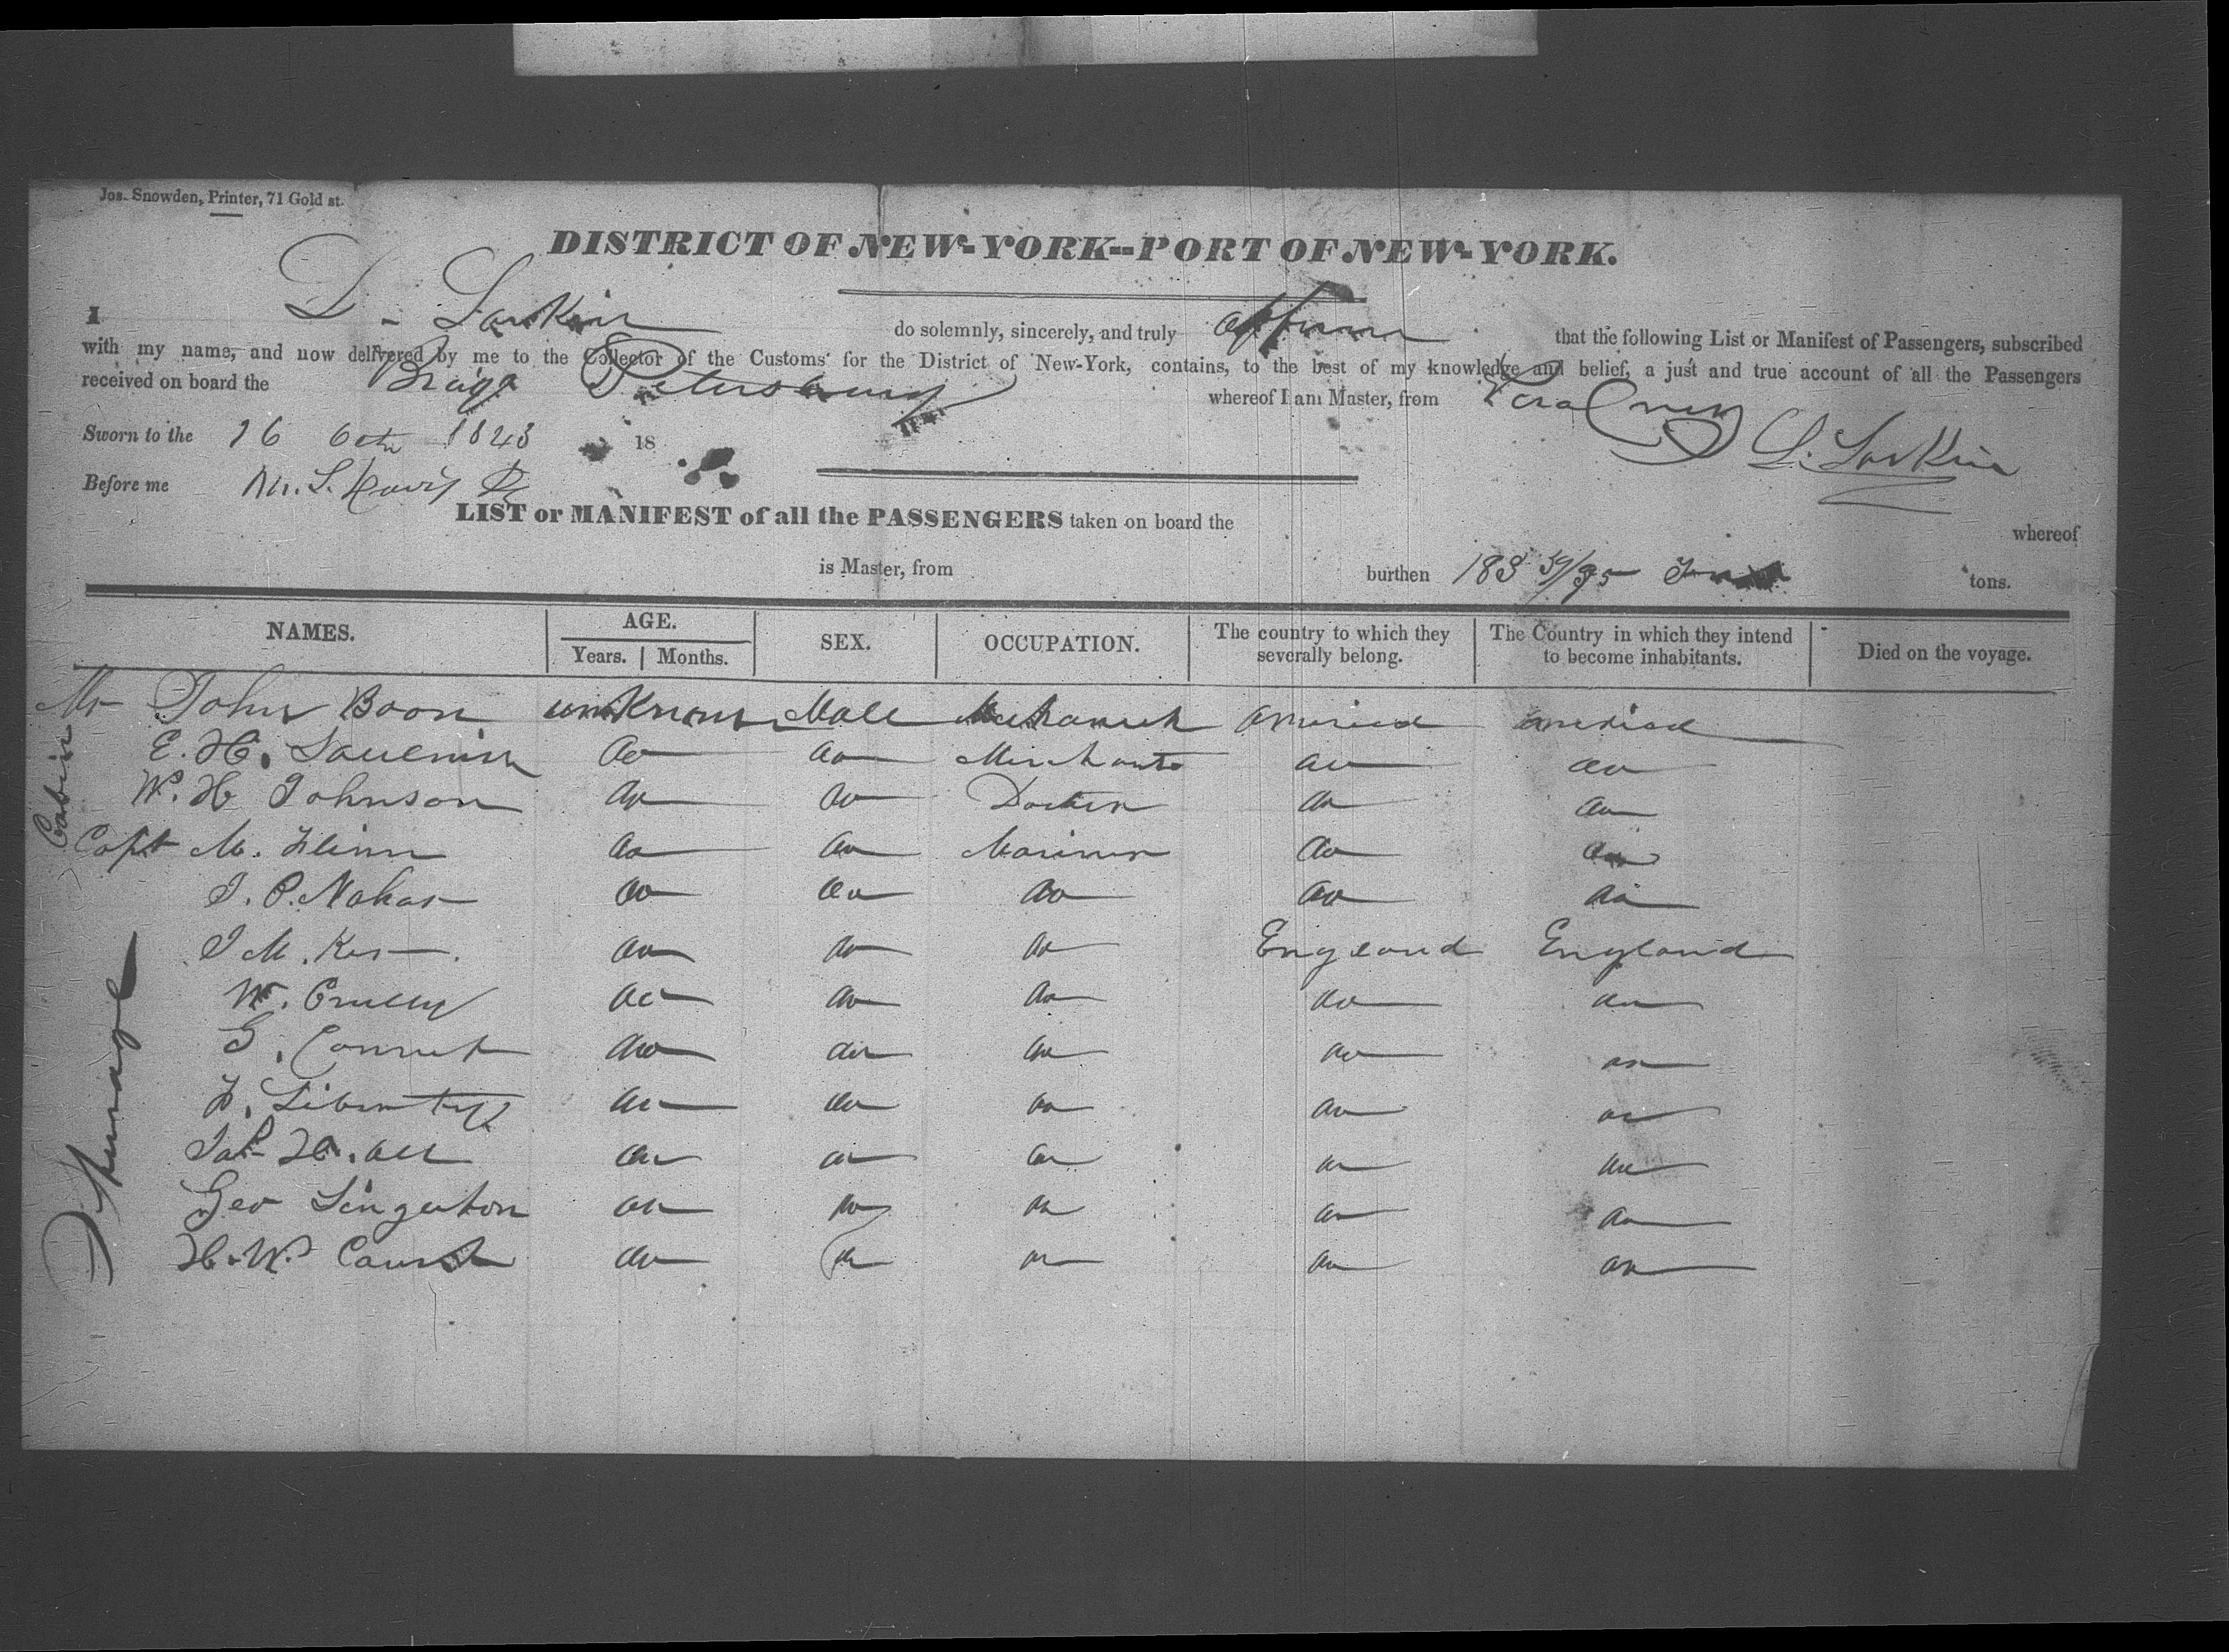 Jos. Snowden, Printer, 71 Gold st.
DISTRICT OF NEW-YORK--PORT OF NEW-YORK.
I D - Larkin do solemnly, sincerely, and truly affirm that the following List or Manifest of Passengers, subscribed
with my name, and now delivered by me to the Collector of the Customs for the District of New-York, contains, to the best of my knowledge and belief, a just and true account of all the Passengers
received on board the Petersburg whereof I am Master, from
Sworn to the 16 Oct 1843 18 L. Larkin
Before me
LIST or MANIFEST of all the PASSENGERS taken on board the whereof
is Master, from burthen 183 59/95 tons.
NAMES. AGE. Years. Months. SEX. OCCUPATION. The country to which they severally belong. The Country in which they intend to become inhabitants. Died on the voyage.
Cabin
Mr John Boon unknown Male America America
E. H. do do Merchant do do
W. H Johnson do do Doctor do do
Capt M. Flinn do do Mariner do do
do do do do do
J M. do do do England England
W. do do do do do
G. do do do do do
Steerage
L. Liberty do do do do do
do do do do do
Geo Singleton do do do do do
H. W. do do do do do